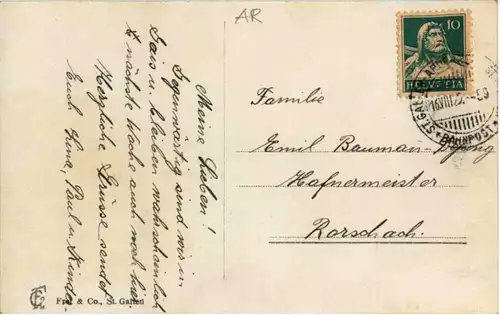 AR
Meine Lieben!
Gegenwärtig sind wir in
Gais u. bleiben wahrscheinlich
nächste Woche auch noch hier.
Herzliche Grüsse sendet
Euch Luna, Paul u. Kinder.
Familie
Emil Bauman
Hafnermeister
Rorschach.
10
HELVETIA
BAHNPOST
Frei & Co., St. Gallen